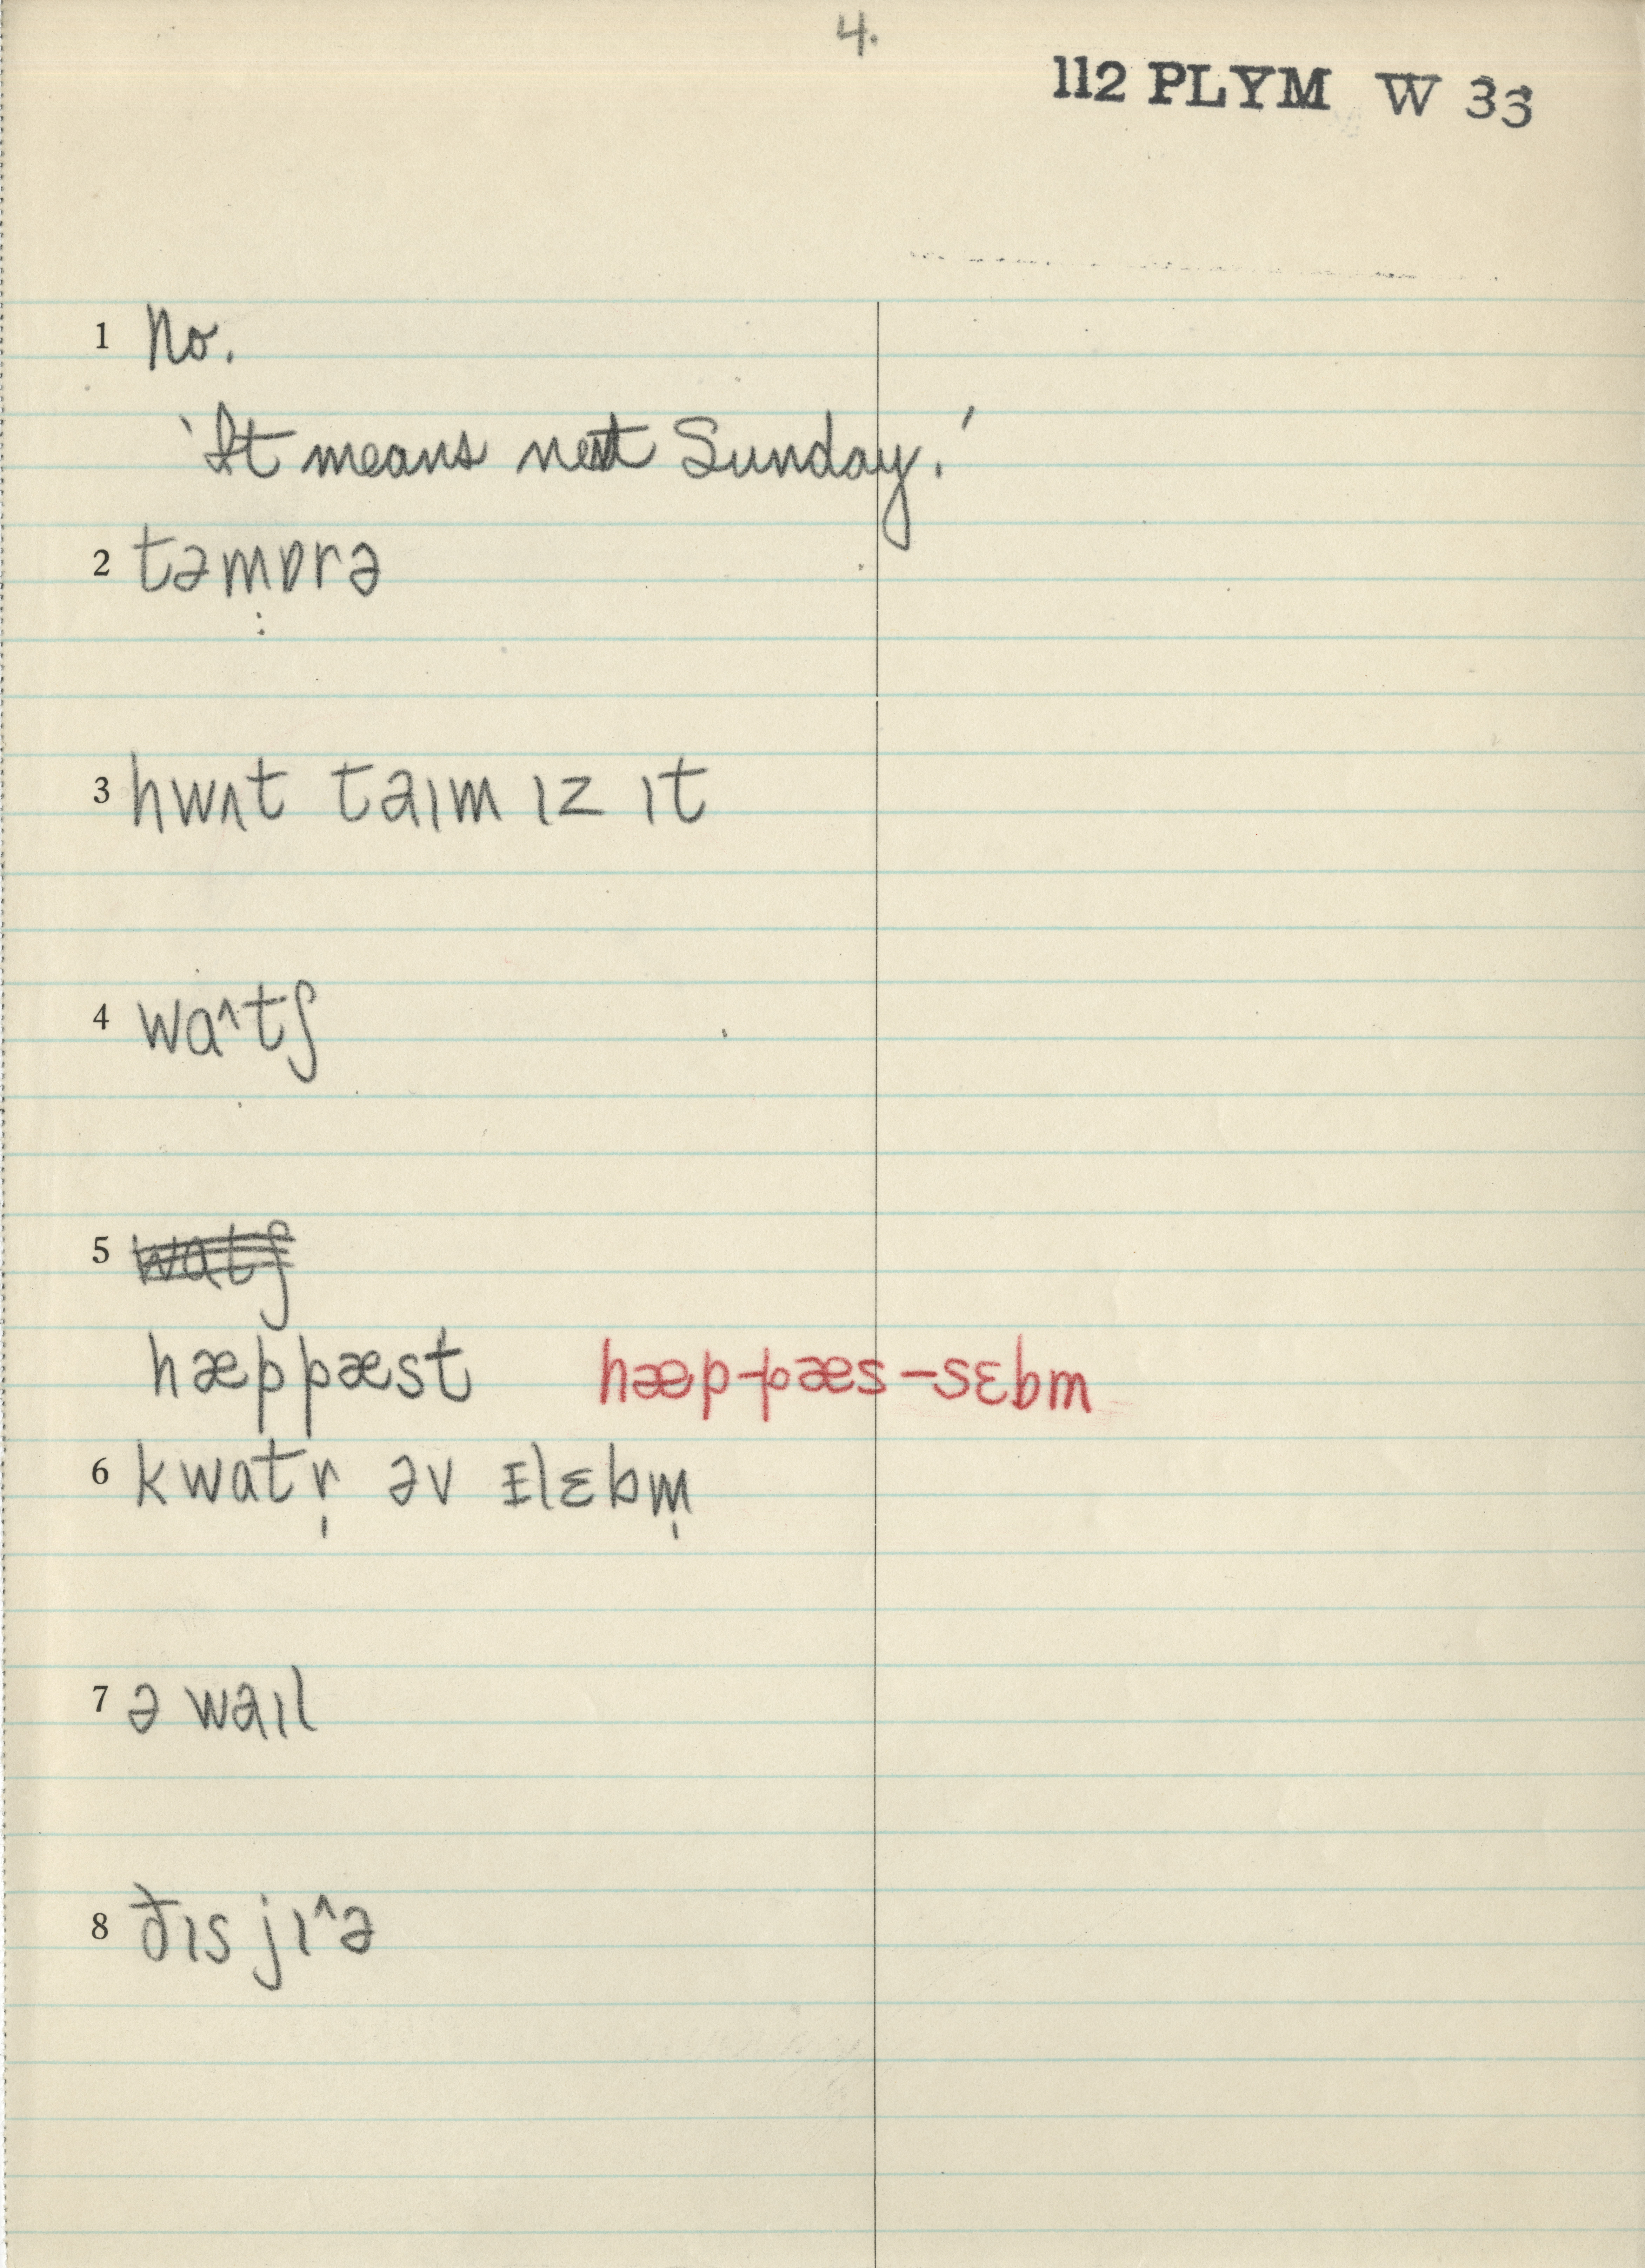 4.
112 PLYM W 33
1 No.
'It means next Sunday.'
2 təmɒrə
3 hwʌt taɪm ɪz ɪt
4 wɑ^tʃ
5 ~~wɑtʃ~~
hæppæst hæp-pæs-sɛbm
6 kwɑtr̩ əv ɪlɛbm̩
7 ə waɪl
8 ðɪs jɪ^ə